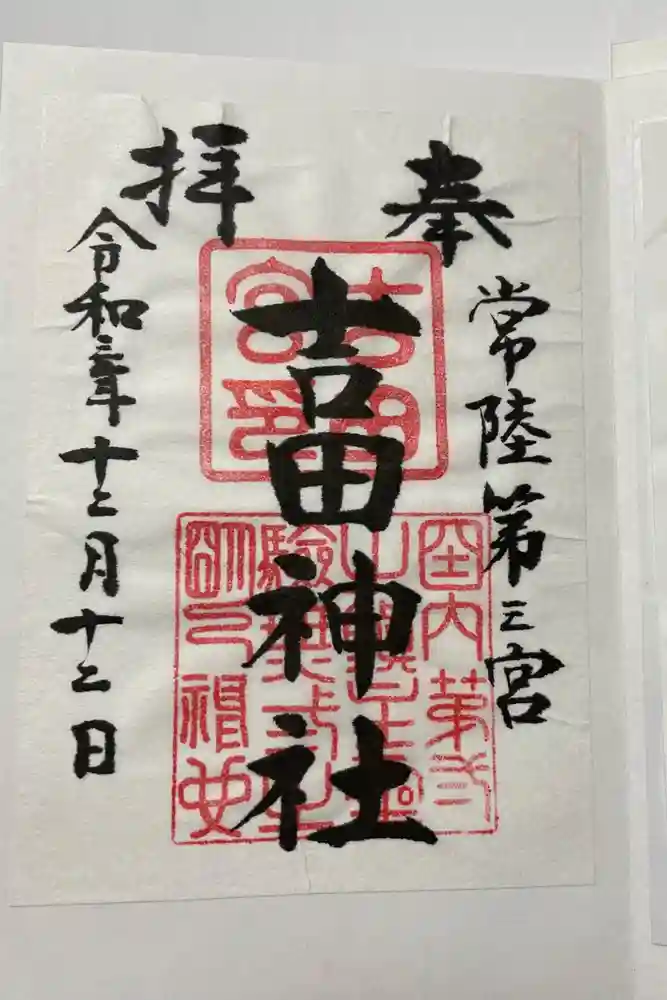 奉拝
常陸第三宮
吉田神社
令和三年十二月十二日
吉田
宮印